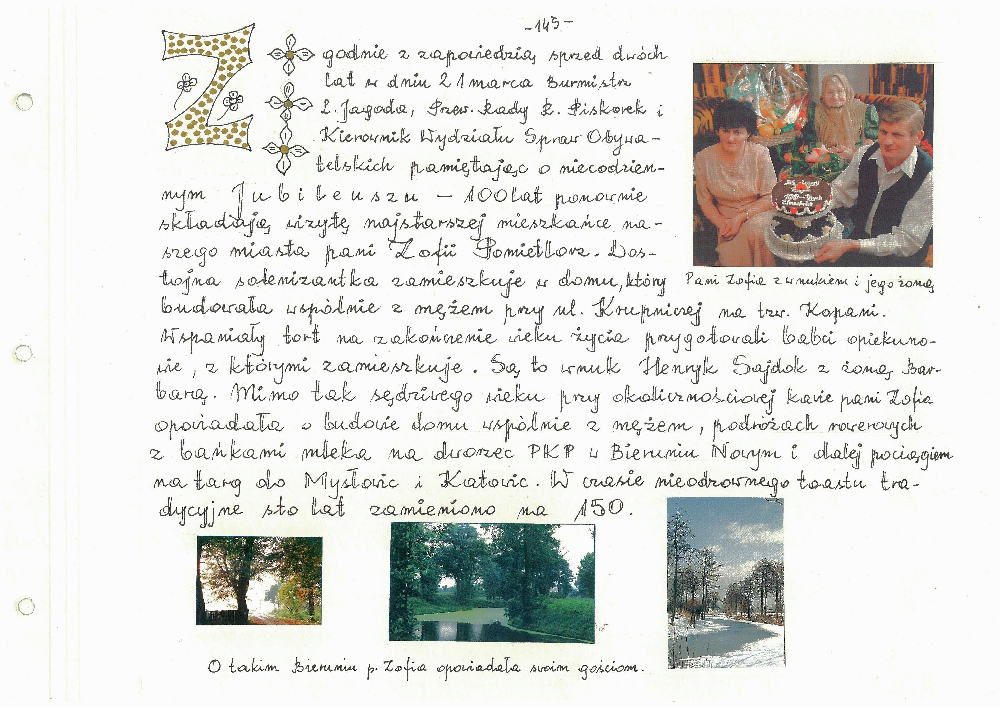 -145-
Zgodnie z zapowiedzią sprzed dwóch
lat w dniu 21 marca Burmistrz
L. Jagoda, Przew. Rady R. Piskorek i
Kierownik Wydziału Spraw Obywa-
telskich pamiętając o niecodzien-
nym Jubileuszu - 100 lat ponownie
składają wizytę najstarszej mieszkańce na-
szego miasta pani Zofii Pomietlorz. Dos-
tojna solenizantka zamieszkuje w domu, który
Pani Zofia z wnukiem i jego żoną
budowała wspólnie z mężem przy ul. Krupniczej na tzw. Kopani.
Wspaniały tort na zakończenie wieku życia przygotowali babci opiekuno-
wie, z którymi zamieszkuje. Są to wnuk Henryk Sajdok z żoną Bar-
barą. Mimo tak sędziwego wieku przy okolicznościowej kawie pani Zofia
opowiadała o budowie domu wspólnie z mężem, podróżach rowerowych
z bańkami mleka na dworzec PKP w Bieruniu Nowym i dalej pociągiem
na targ do Mysłowic i Katowic. W czasie nieodzownego toastu tra-
dycyjne sto lat zamieniono na 150.
O takim Bieruniu p. Zofia opowiadała swoim gościom.